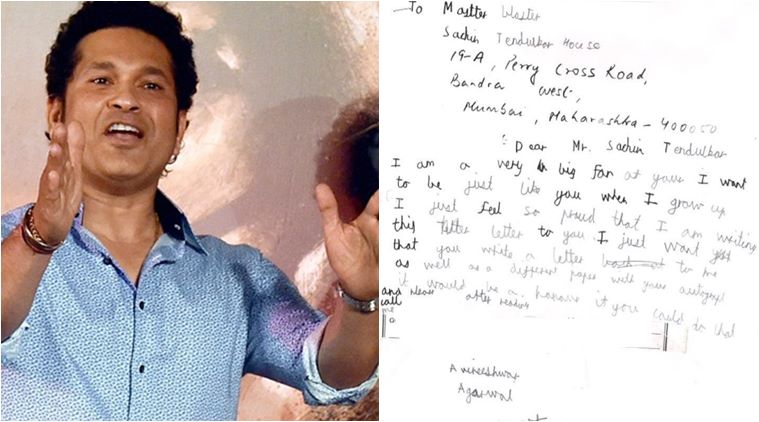 To Mastter blaster
Sachin Tendulkar House
19-A, Perry Cross Road,
Bandra west,
Mumbai, Maharashtra - 400050
: Dear Mr. Sachin Tendulkar
I am a very big fan at yours I want
to be just like you when I grow up
I just feel so proud that I am writing
this letter to you I just want
that you write a letter to me
as well as a different paper with your autograph
it would be a honour if you could do that
and please after reading
call
me
Avneeshwar
Agarwal